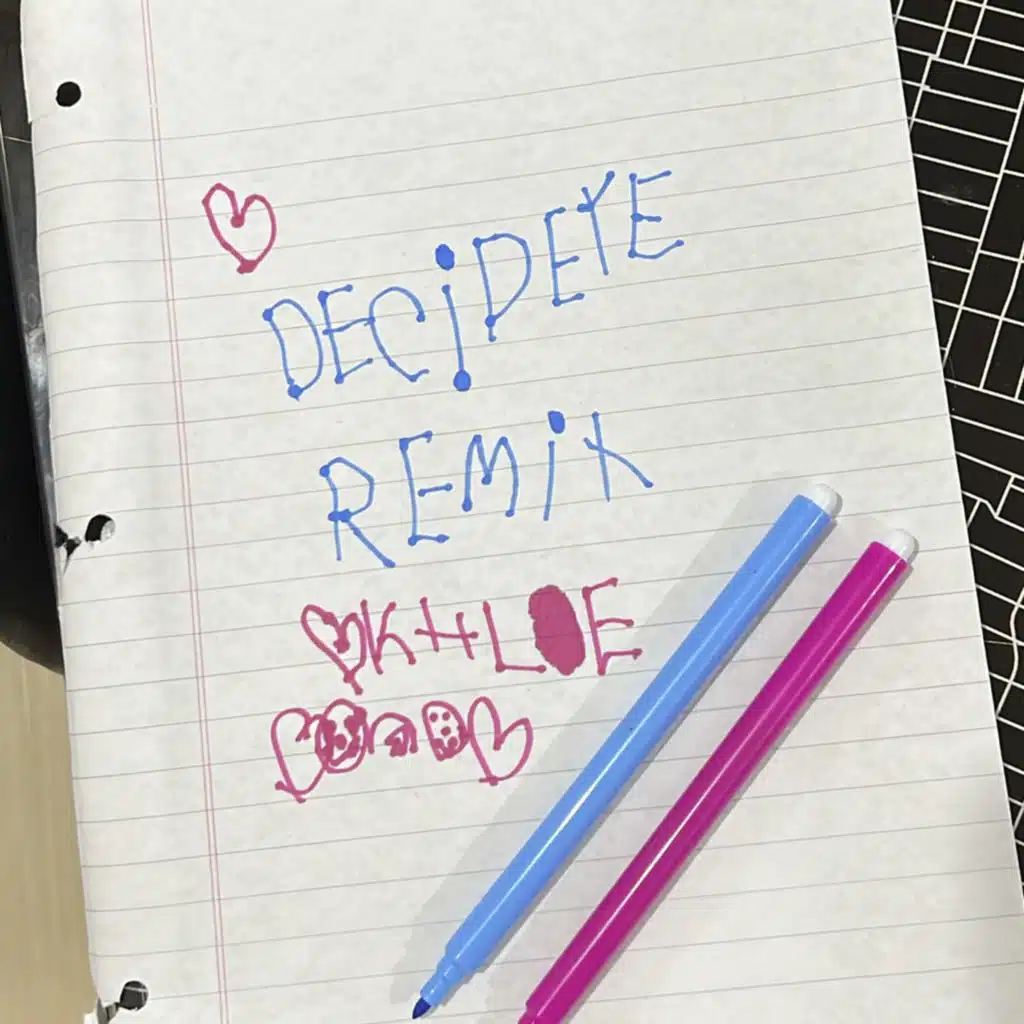 DECiDEYE
REMiX
KHLOE